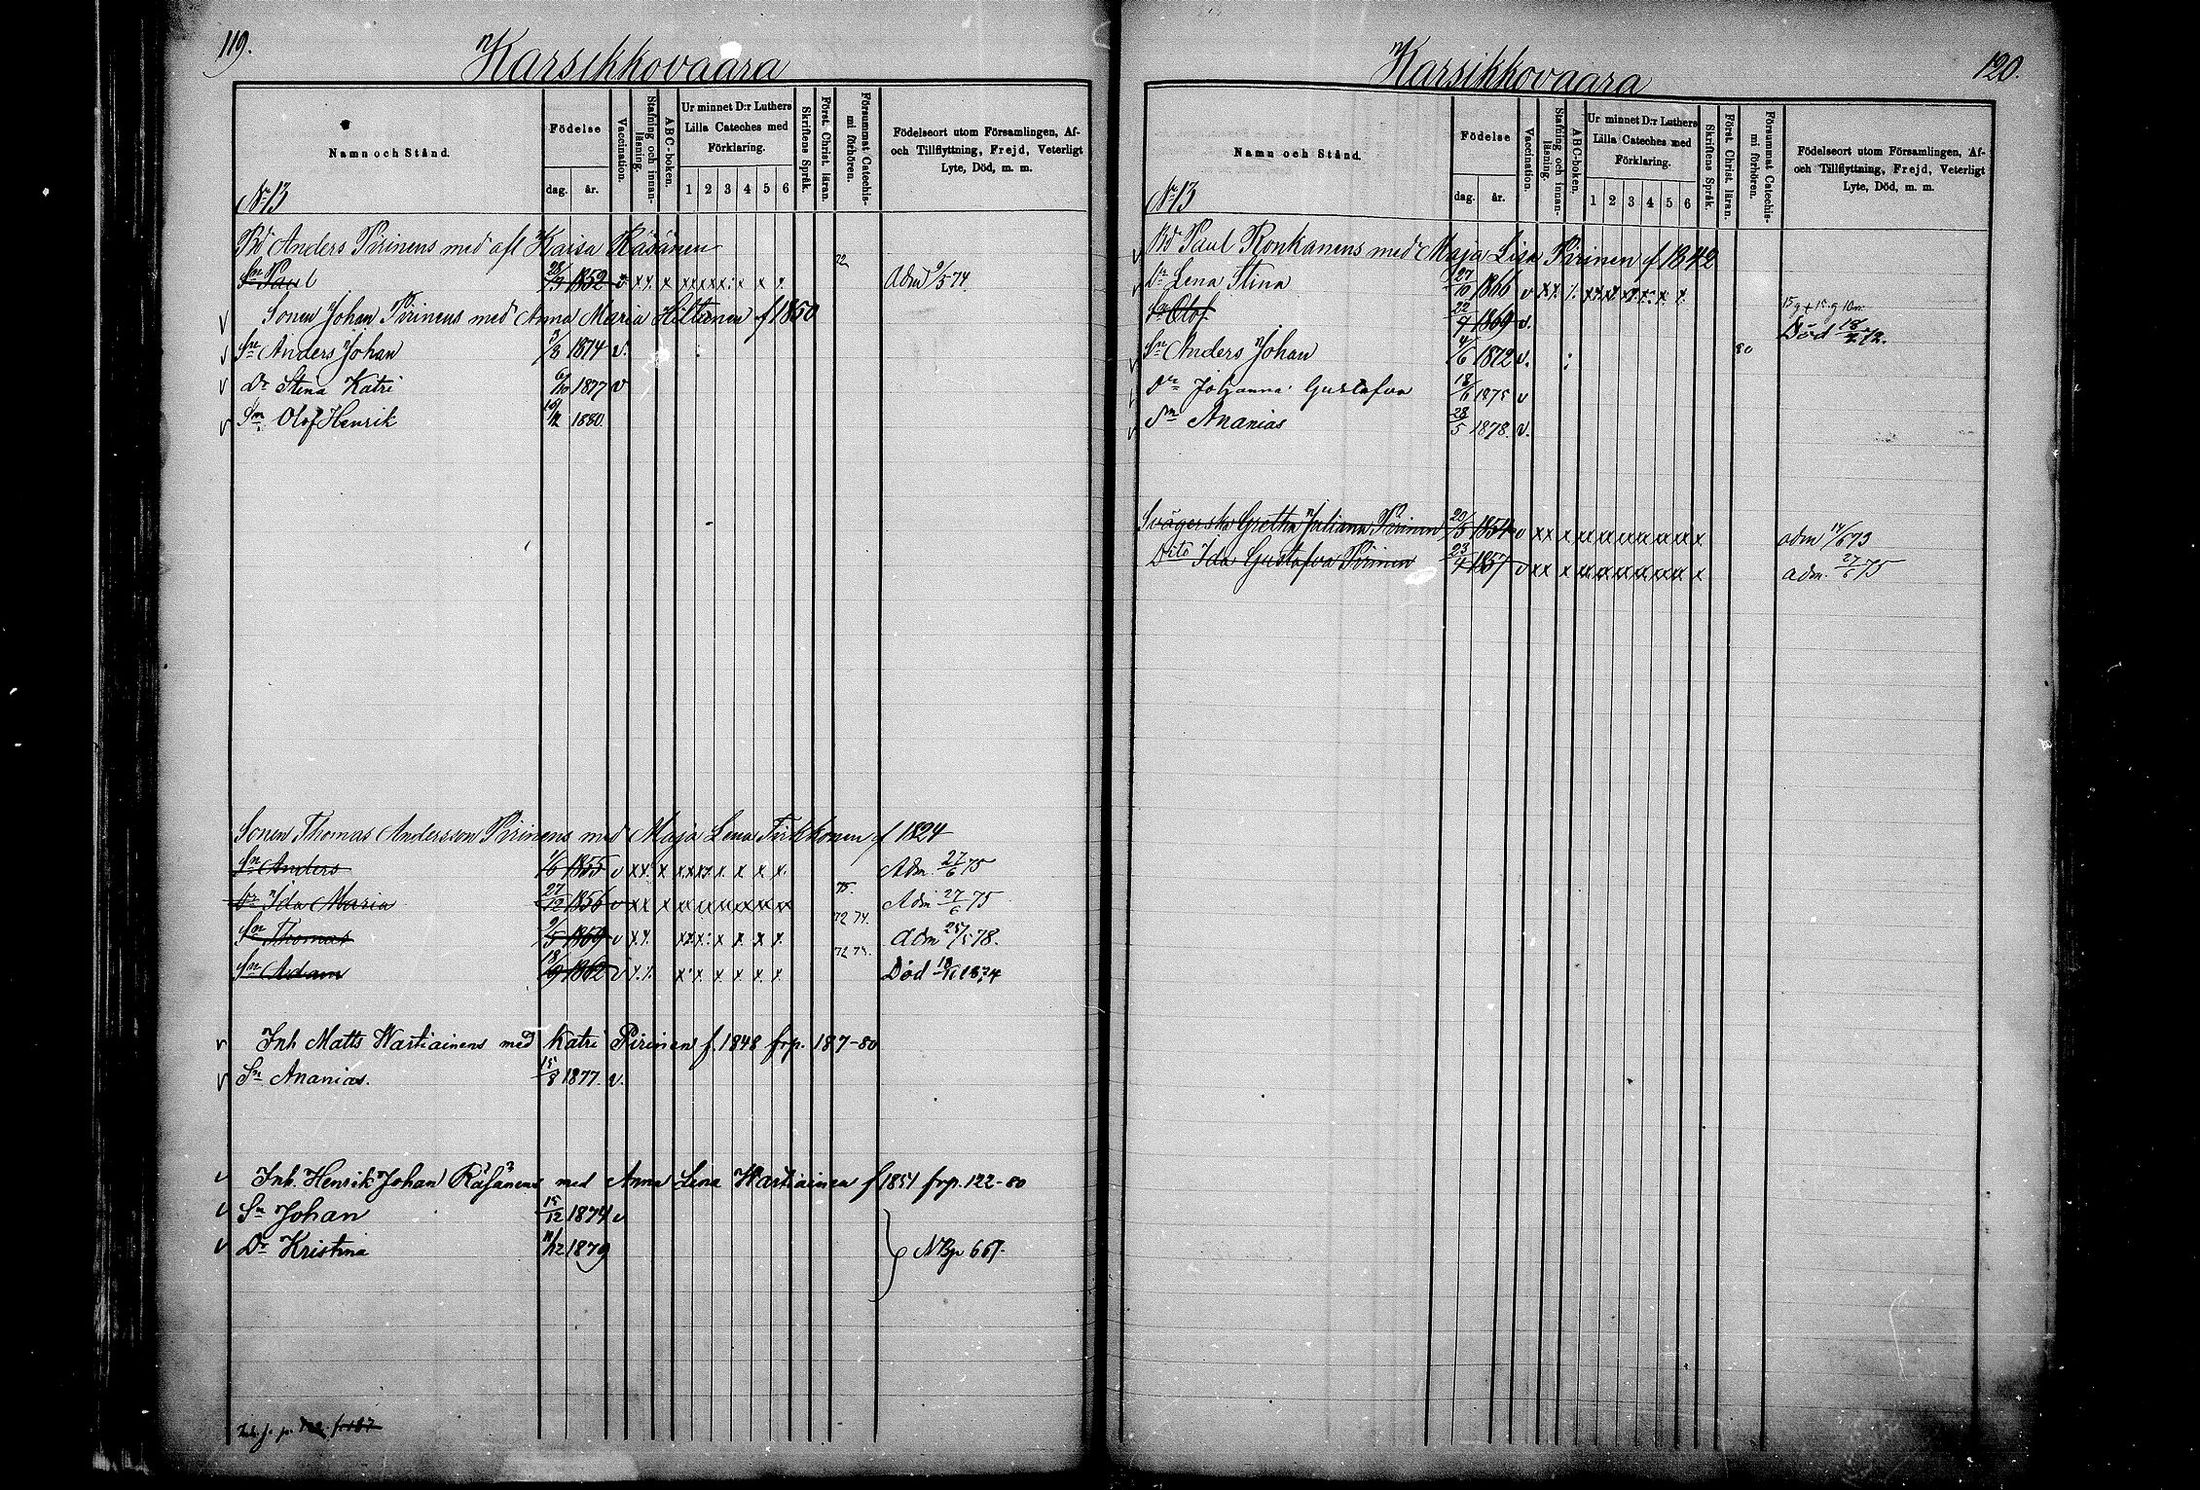 119.
Karsikkovaara
Namn och Stånd.
Födelse
dag. år.
Vaccination.
Stafning och innan-läsning.
ABC-boken.
Ur minnet D:r Luthers Lilla Cateches med Förklaring.
1 2 3 4 5 6
Skriftens Språk.
Först. Christ. läran.
Försummat Catechis-mi förhören.
Födelseort utom Församlingen, Af-och Tillflyttning, Frejd, Veterligt Lyte, Död, m. m.
No 13
Bd Anders Pirinens med afl Kaisa Räsänen
Sn Paul 28/9 1852 v xx x xxxxx x x 72 Adm 9/5 74
Sonen Johan Pirinens med Anna Maria Hiltunen f 1850
v Sn Anders Johan 3/8 1874 v.
v Dr Stina Katri 6/10 1877 v
v Sn Olof Henrik 1880.
Sonen Thomas Andersson Pirinens med Maja Lena Tirkkonen f 1824
Sn Anders 1/6 1855 v xx x xxxx x x x x Adm. 27/6 75
Dr Ida Maria 27/12 1856 v xx x 75. Adm 27/6 75
Sn Thomas 9/5 1859 v xx xxx x x x x 72 74. Adm 25/5 78.
Sn Adam 18/9 1862 v x x x x x x x x 72 73. Död 18/11 1874
v Inh Matts Wartiainens med Katri Pirinen f. 1848 frp. 187-80
v Sn Ananias. 15/8 1877. v.
v Inh. Henrik Johan Räsänens med Anna Lena Wartiainen f 1854 frp. 122-80
v Sn Johan 15/12 1874 v
v Dr Kristina 11/12 1879 } NBp 667.
120.
Karsikkovaara
Namn och Stånd.
Födelse
dag. år.
Vaccination.
Stafning och innan-läsning.
ABC-boken.
Ur minnet D:r Luthers Lilla Cateches med Förklaring.
1 2 3 4 5 6
Skriftens Språk.
Först. Christ. läran.
Försummat Catechis-mi förhören.
Födelseort utom Församlingen, Af-och Tillflyttning, Frejd, Veterligt Lyte, Död, m. m.
No 13
v Bd Paul Ronkanens med Maja Lisa Pirinen f 1842
v Dr Lena Stina 27/10 1866 v xx x xxx xx x x
Sn Olof 22/7 1869 v. Död 18/2 72.
v Sn Anders Johan 4/6 1872 v. 80
v Dr Johanna Gustafva 18/6 1875 v
v Sn Ananias 28/5 1878 v.
Svägersk. Gretha Juliana Pirinen 20/5 1854 v xx x adm 14/6 73
Dito Ida Gustafva Pirinen 23/7 1857 v xx x adm. 27/6 75